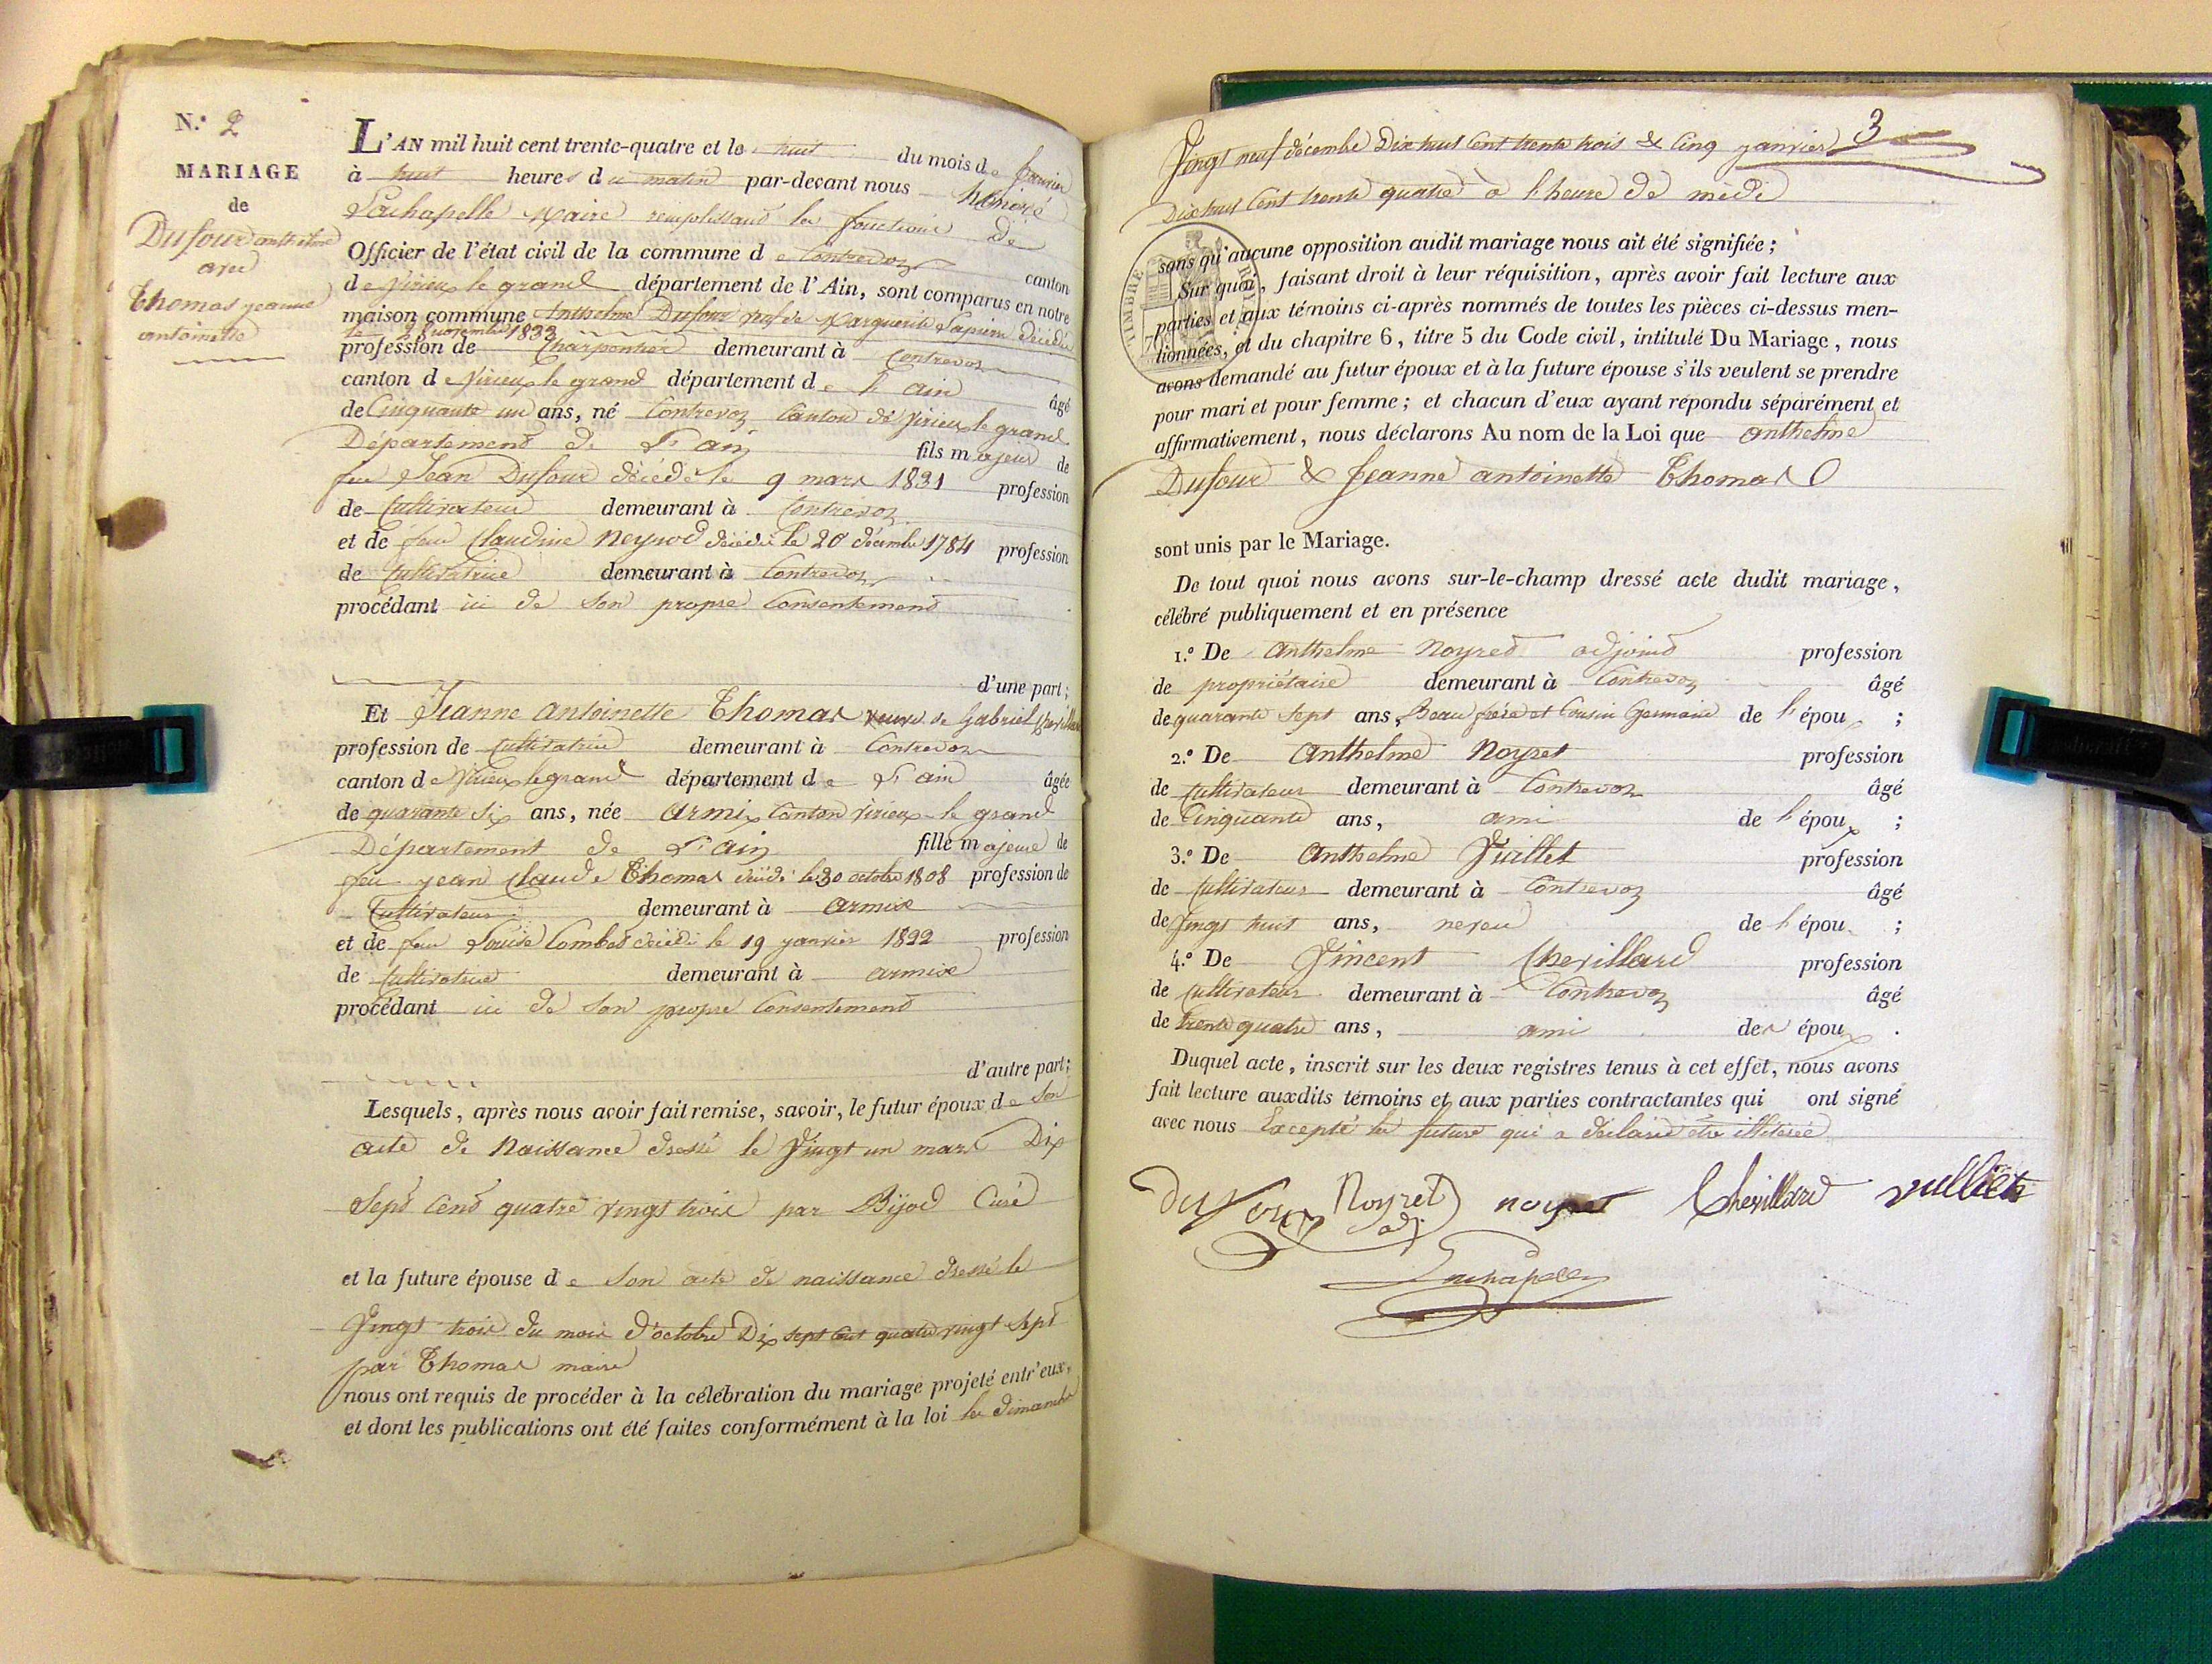 N.º 2
MARIAGE
de
Dufour anthelme
avec
Thomas jeanne
antoinette
L'AN mil huit cent trente-quatre et le huit du mois de janvier
à huit heures du matin par-devant nous honoré
Lachapelle Maire remplissant les fonctions de
Officier de l'état civil de la commune de Contrevoz canton
de Virieu le grand département de l'Ain, sont comparus en notre
maison commune Anthelme Dufour veuf de Marguerite décédée
le 28 novembre 1833
profession de Charpentier demeurant à Contrevoz
canton de Virieu le grand département de l'ain âgé
de Cinquante un ans, né Contrevoz Canton de Virieu le grand
Département de L'ain fils majeur de
feu Jean Dufour décédé le 9 mars 1831 profession
de Cultivateur demeurant à Contrevoz
et de feue Claudine Neyrod décédée le 20 décembre 1784 profession
de Cultivatrice demeurant à Contrevoz
procédant ici de Son propre Consentement
d'une part;
Et Jeanne Antoinette Thomas veuve de Gabriel
profession de Cultivatrice demeurant à Contrevoz
canton de Virieu le grand département de L'ain âgée
de quarante Six ans, née Armix Canton Virieu le grand
Département de L'ain fille majeure de
feu jean Claude Thomas décédé le 30 octobre 1808 profession de
Cultivateur demeurant à Armix
et de feue Louise Combet décédée le 19 janvier 1822 profession
de Cultivatrice demeurant à armix
procédant ici de Son propre Consentement
d'autre part;
Lesquels, après nous avoir fait remise, savoir, le futur époux de Son
acte de Naissance dressé le Vingt un mars Dix
Sept Cent quatre vingt trois par Bijod Curé
et la future épouse de Son acte de naissance dressé le
Vingt trois du mois d'octobre Dix Sept Cent quatre vingt Sept
par Thomas maire
nous ont requis de procéder à la célébration du mariage projeté entr'eux,
et dont les publications ont été faites conformément à la loi les dimanche
3
Vingt neuf décembre Dix huit Cent trente trois & Cinq janvier
Dix huit Cent trente quatre à l'heure de midi
TIMBRE
sans qu'aucune opposition audit mariage nous ait été signifiée;
Sur quoi, faisant droit à leur réquisition, après avoir fait lecture aux
parties et aux témoins ci-après nommés de toutes les pièces ci-dessus men-
tionnées, et du chapitre 6, titre 5 du Code civil, intitulé Du Mariage, nous
avons demandé au futur époux et à la future épouse s'ils veulent se prendre
pour mari et pour femme; et chacun d'eux ayant répondu séparément et
affirmativement, nous déclarons Au nom de la Loi que anthelme
Dufour & Jeanne antoinette Thomas
sont unis par le Mariage.
De tout quoi nous avons sur-le-champ dressé acte dudit mariage,
célébré publiquement et en présence
1.º De Anthelme Noyret adjoint profession
de propriétaire demeurant à Contrevoz âgé
de quarante Sept ans, Beau frère et Cousin Germain de l'époux ;
2.º De Anthelme Noyret profession
de Cultivateur demeurant à Contrevoz âgé
de Cinquante ans, ami de l'époux ;
3.º De Anthelme Vuillet profession
de Cultivateur demeurant à Contrevoz âgé
de Vingt huit ans, neveu de l'époux ;
4.º De Vincent Chevillard profession
de Cultivateur demeurant à Contrevoz âgé
de trente quatre ans, ami des époux .
Duquel acte, inscrit sur les deux registres tenus à cet effet, nous avons
fait lecture auxdits témoins et aux parties contractantes qui ont signé
avec nous Excepté la future qui a déclaré être illitérée
Dufour Noyret noyret Chevillard vulliet
adj.
Lachapelle